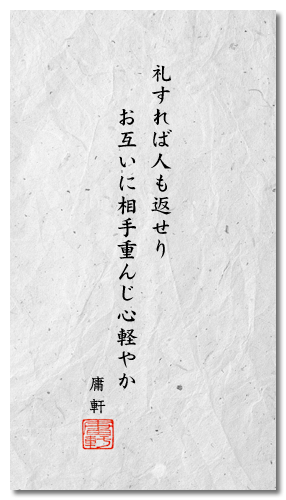 礼すれば人も返せり
お互いに相手重んじ心軽やか
庸軒